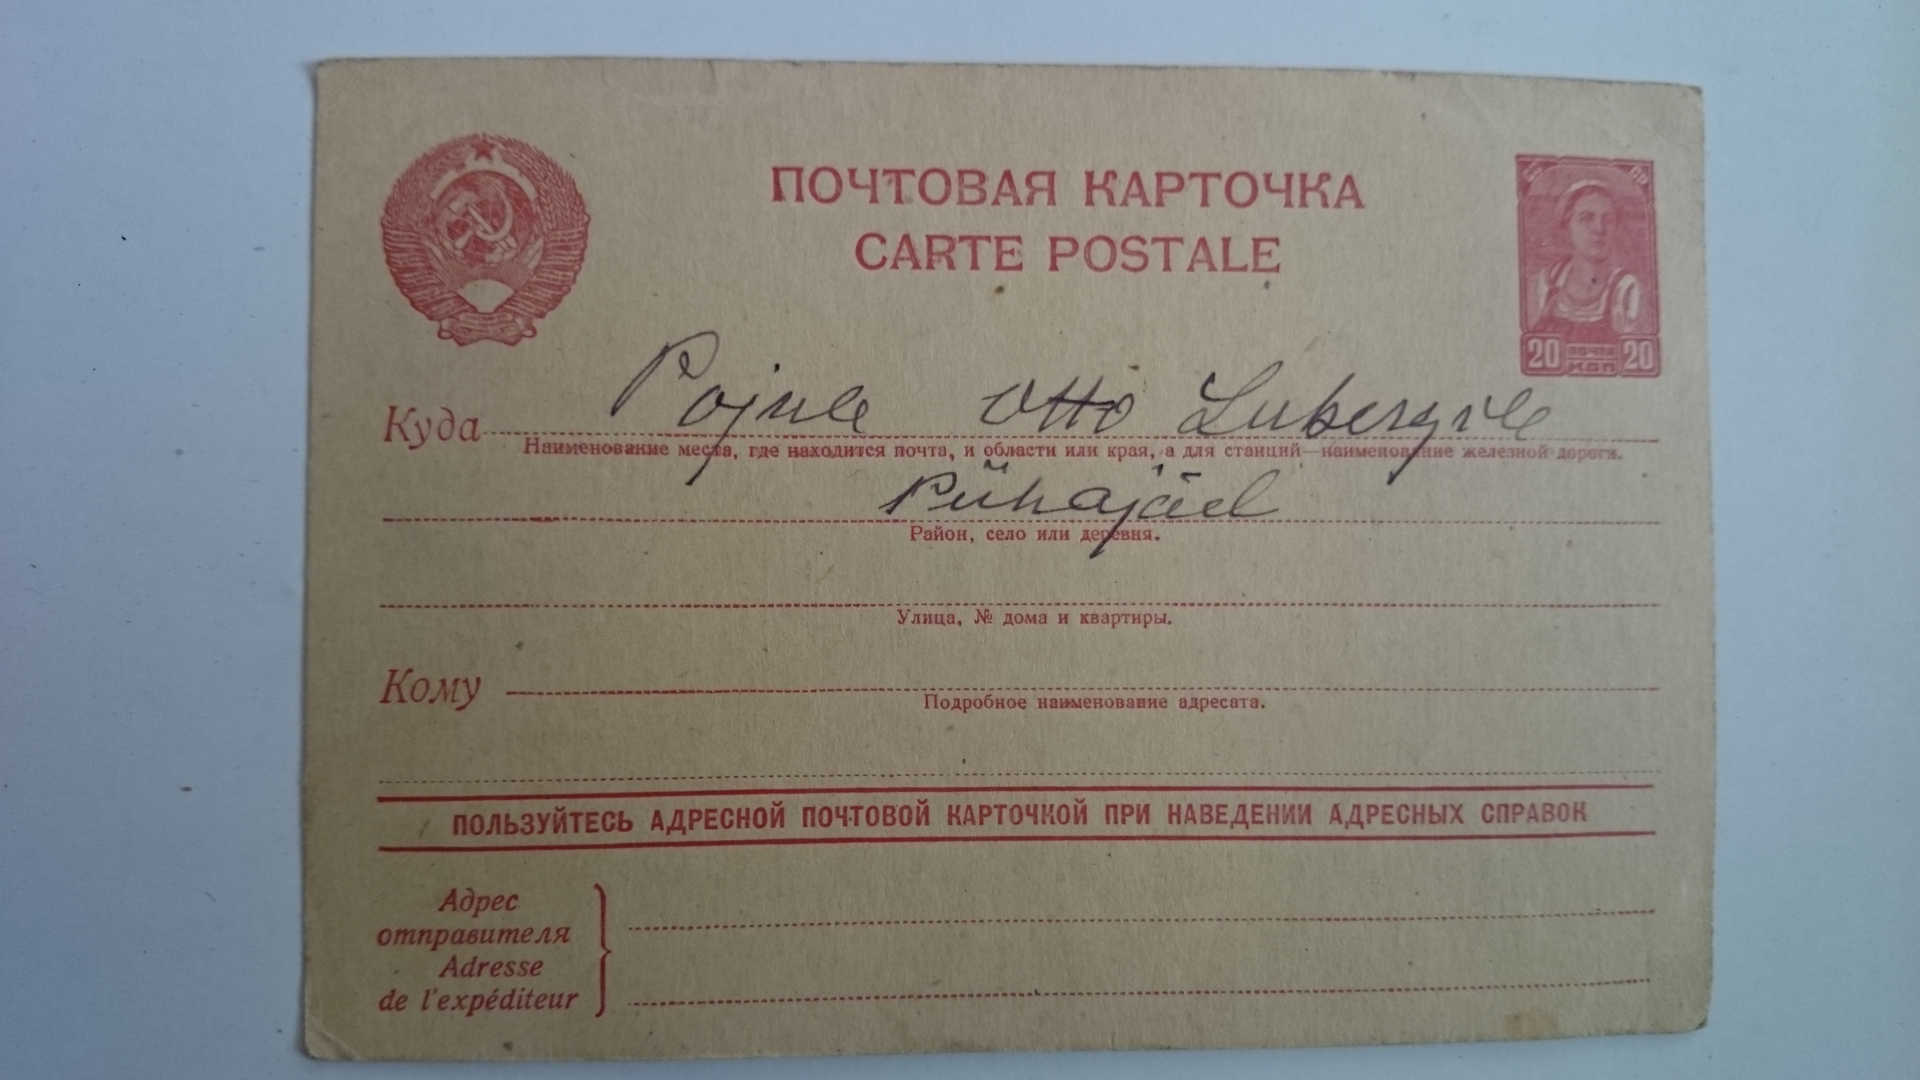 ПОЧТОВАЯ КАРТОЧКА
CARTE POSTALE
20 ПОЧТА 20
КОП
Pojule Otto Lubergile
Куда
Наименование места, где находится почта, и области или края, а для станций—наименование железной дороги.
Pühajäel
Район, село или деревня.
Улица, № дома и квартиры.
Кому
Подробное наименование адресата.
ПОЛЬЗУЙТЕСЬ АДРЕСНОЙ ПОЧТОВОЙ КАРТОЧКОЙ ПРИ НАВЕДЕНИИ АДРЕСНЫХ СПРАВОК
Адрес
отправителя
Adresse
de l'expéditeur